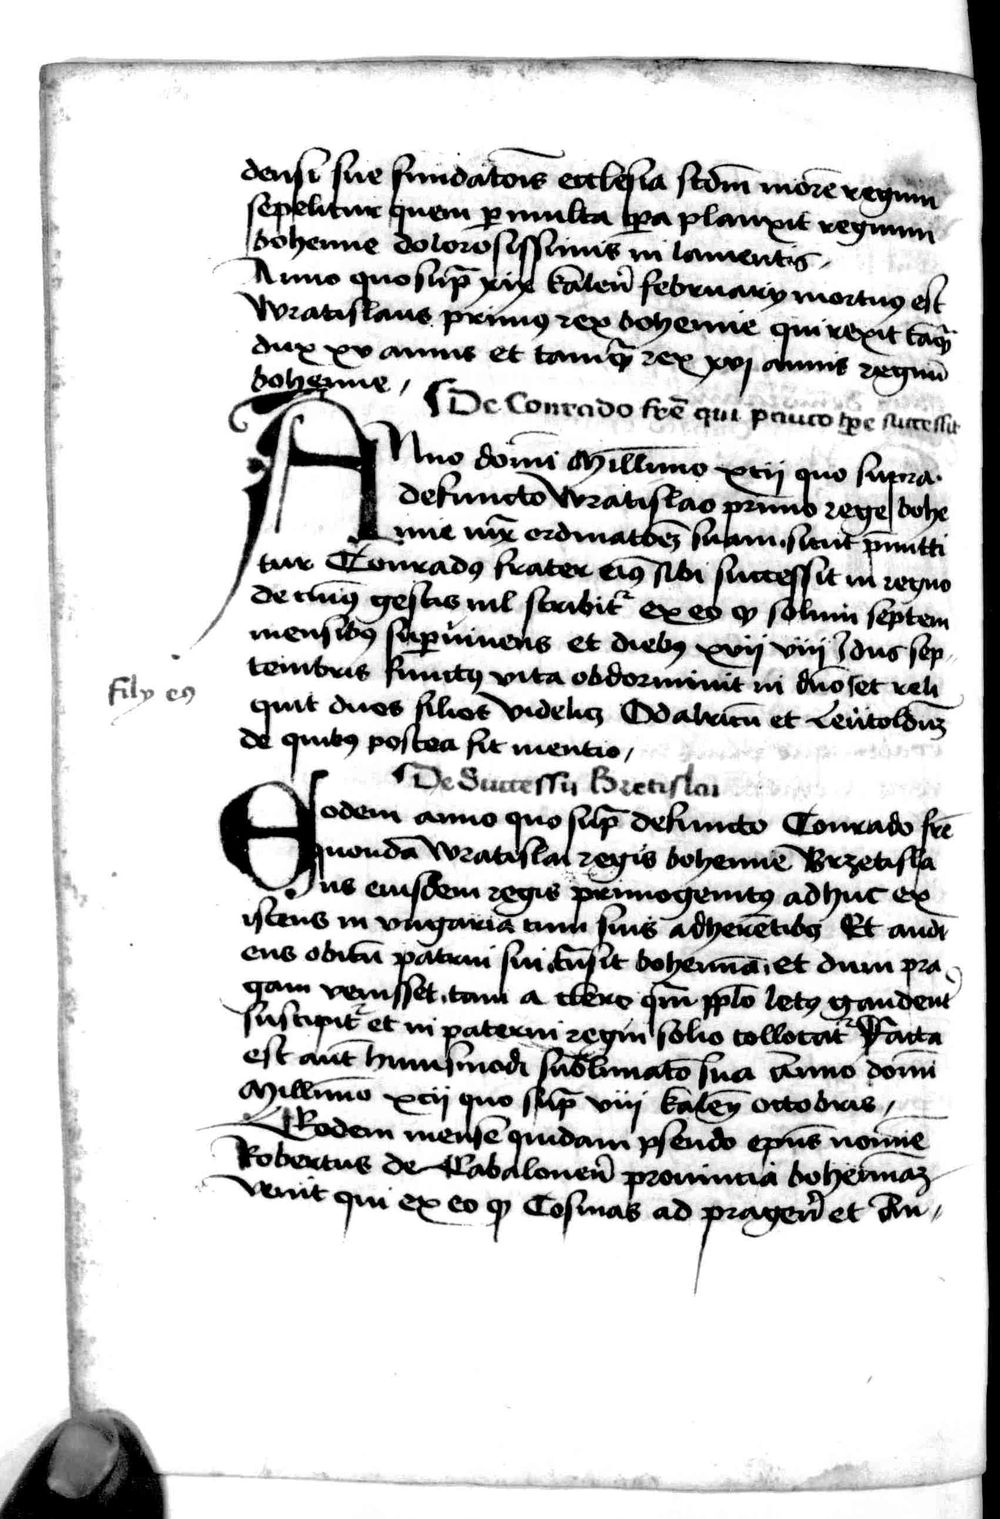 densi sue fundatois ecclesia scdm more regum
sepelitur quem p multa tpa planxit regnum
bohemie dolorosissimis in lamentis
Anno quo sup xix kalen february mortuus est
Wratislaus primus rex bohemie qui rexit taq
dux xv annis et tamq rex xvi annis regnu
bohemie
De Conrado fre qui pauco tpe successit
Anno domi Millimo xcii quo supra
defuncto Wratislao primo rege bohe
mie iux ordinatoez suam sicut pmitti
tur Conradus frater eius sibi successit in regno
de cuius gestis nil scribitr ex eo q solum septem
mensibus supuiuens et diebus xvii viii Idus sep
tembris functus vita obdormiuit in dno et reli
Filij eius
quit duos filios videlicz Odalricu et Leutolduz
de quibus postea fit mentio
De Successu Bretislai
Eodem anno quo sup defuncto Conrado fre
quonda Wratislai regis bohemie Brzetisla
us eiusdem regis primogenitus adhuc ex
istens in vngaria cum suis adheretibus Et audi
ens obitu patrui sui tnsit bohemia et dum pra
gam venisset tam a clero qm pplo letus gaudent
suscipitr et in paterni regni solio collocatr Facta
est aut huiusmodi sublimato sua Anno domi
Millimo xcii quo sup viii kalen octobris
Eodem mense quidam pseudo epus nomine
Robertus de Cabalonen prouincia bohemiaz
venit qui ex eo q Cosmas ad pragen et An